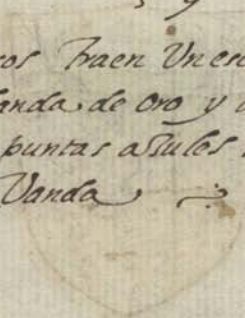 cos Traen Un esc
Vanda de oro y
puntas asules
Vanda